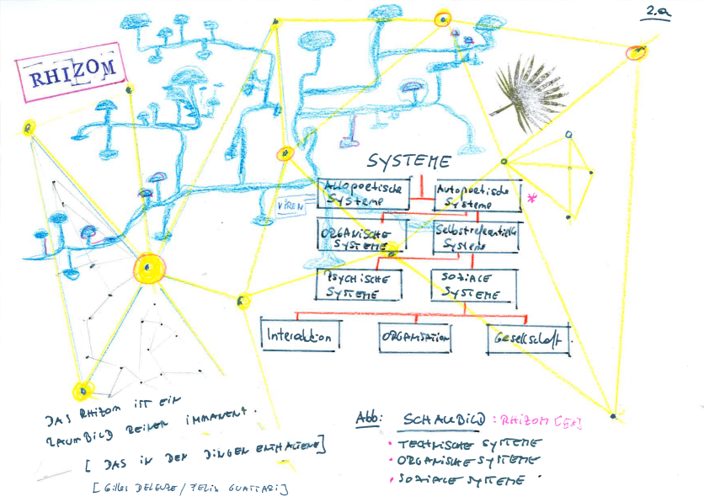 2.a
RHIZOM
SYSTEME
Allopoetische Systeme
Autopoetische Systeme
*
VIREN
ORGANISCHE SYSTEME
Selbstreferentielle Systeme
PSYCHISCHE SYSTEME
SOZIALE SYSTEME
Interaktion
ORGANISATION
Gesellschaft
DAS RHIZOM IST EIN
RAUMBILD REINER IMMANENZ.
[DAS IN DEN DINGEN ENTHALTENE]
[Gilles DELEUZE / FELIX GUATTARI]
Abb: SCHAUBILD: RHIZOM
• TECHNISCHE SYSTEME
• ORGANISCHE SYSTEME
• SOZIALE SYSTEME